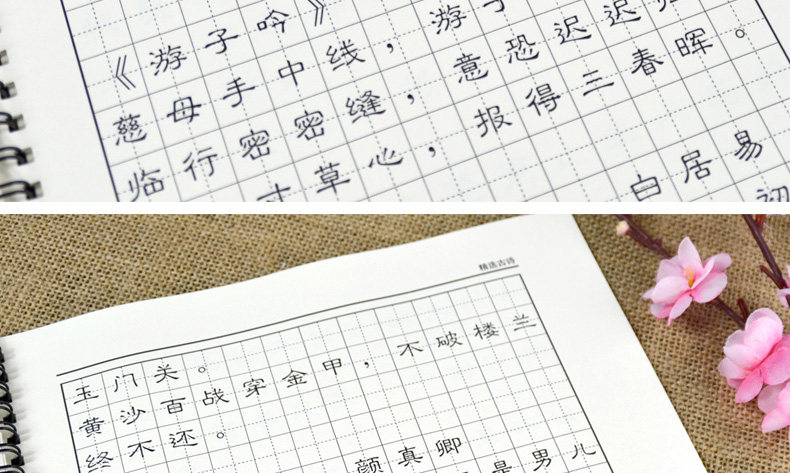 《游子吟》
慈母手中线，游子
临行密密缝，意恐迟迟归
寸草心，报得三春晖。
白居易
初
精选古诗
玉门关。
黄沙百战穿金甲，不破楼兰
终不还。
颜真卿
是男儿